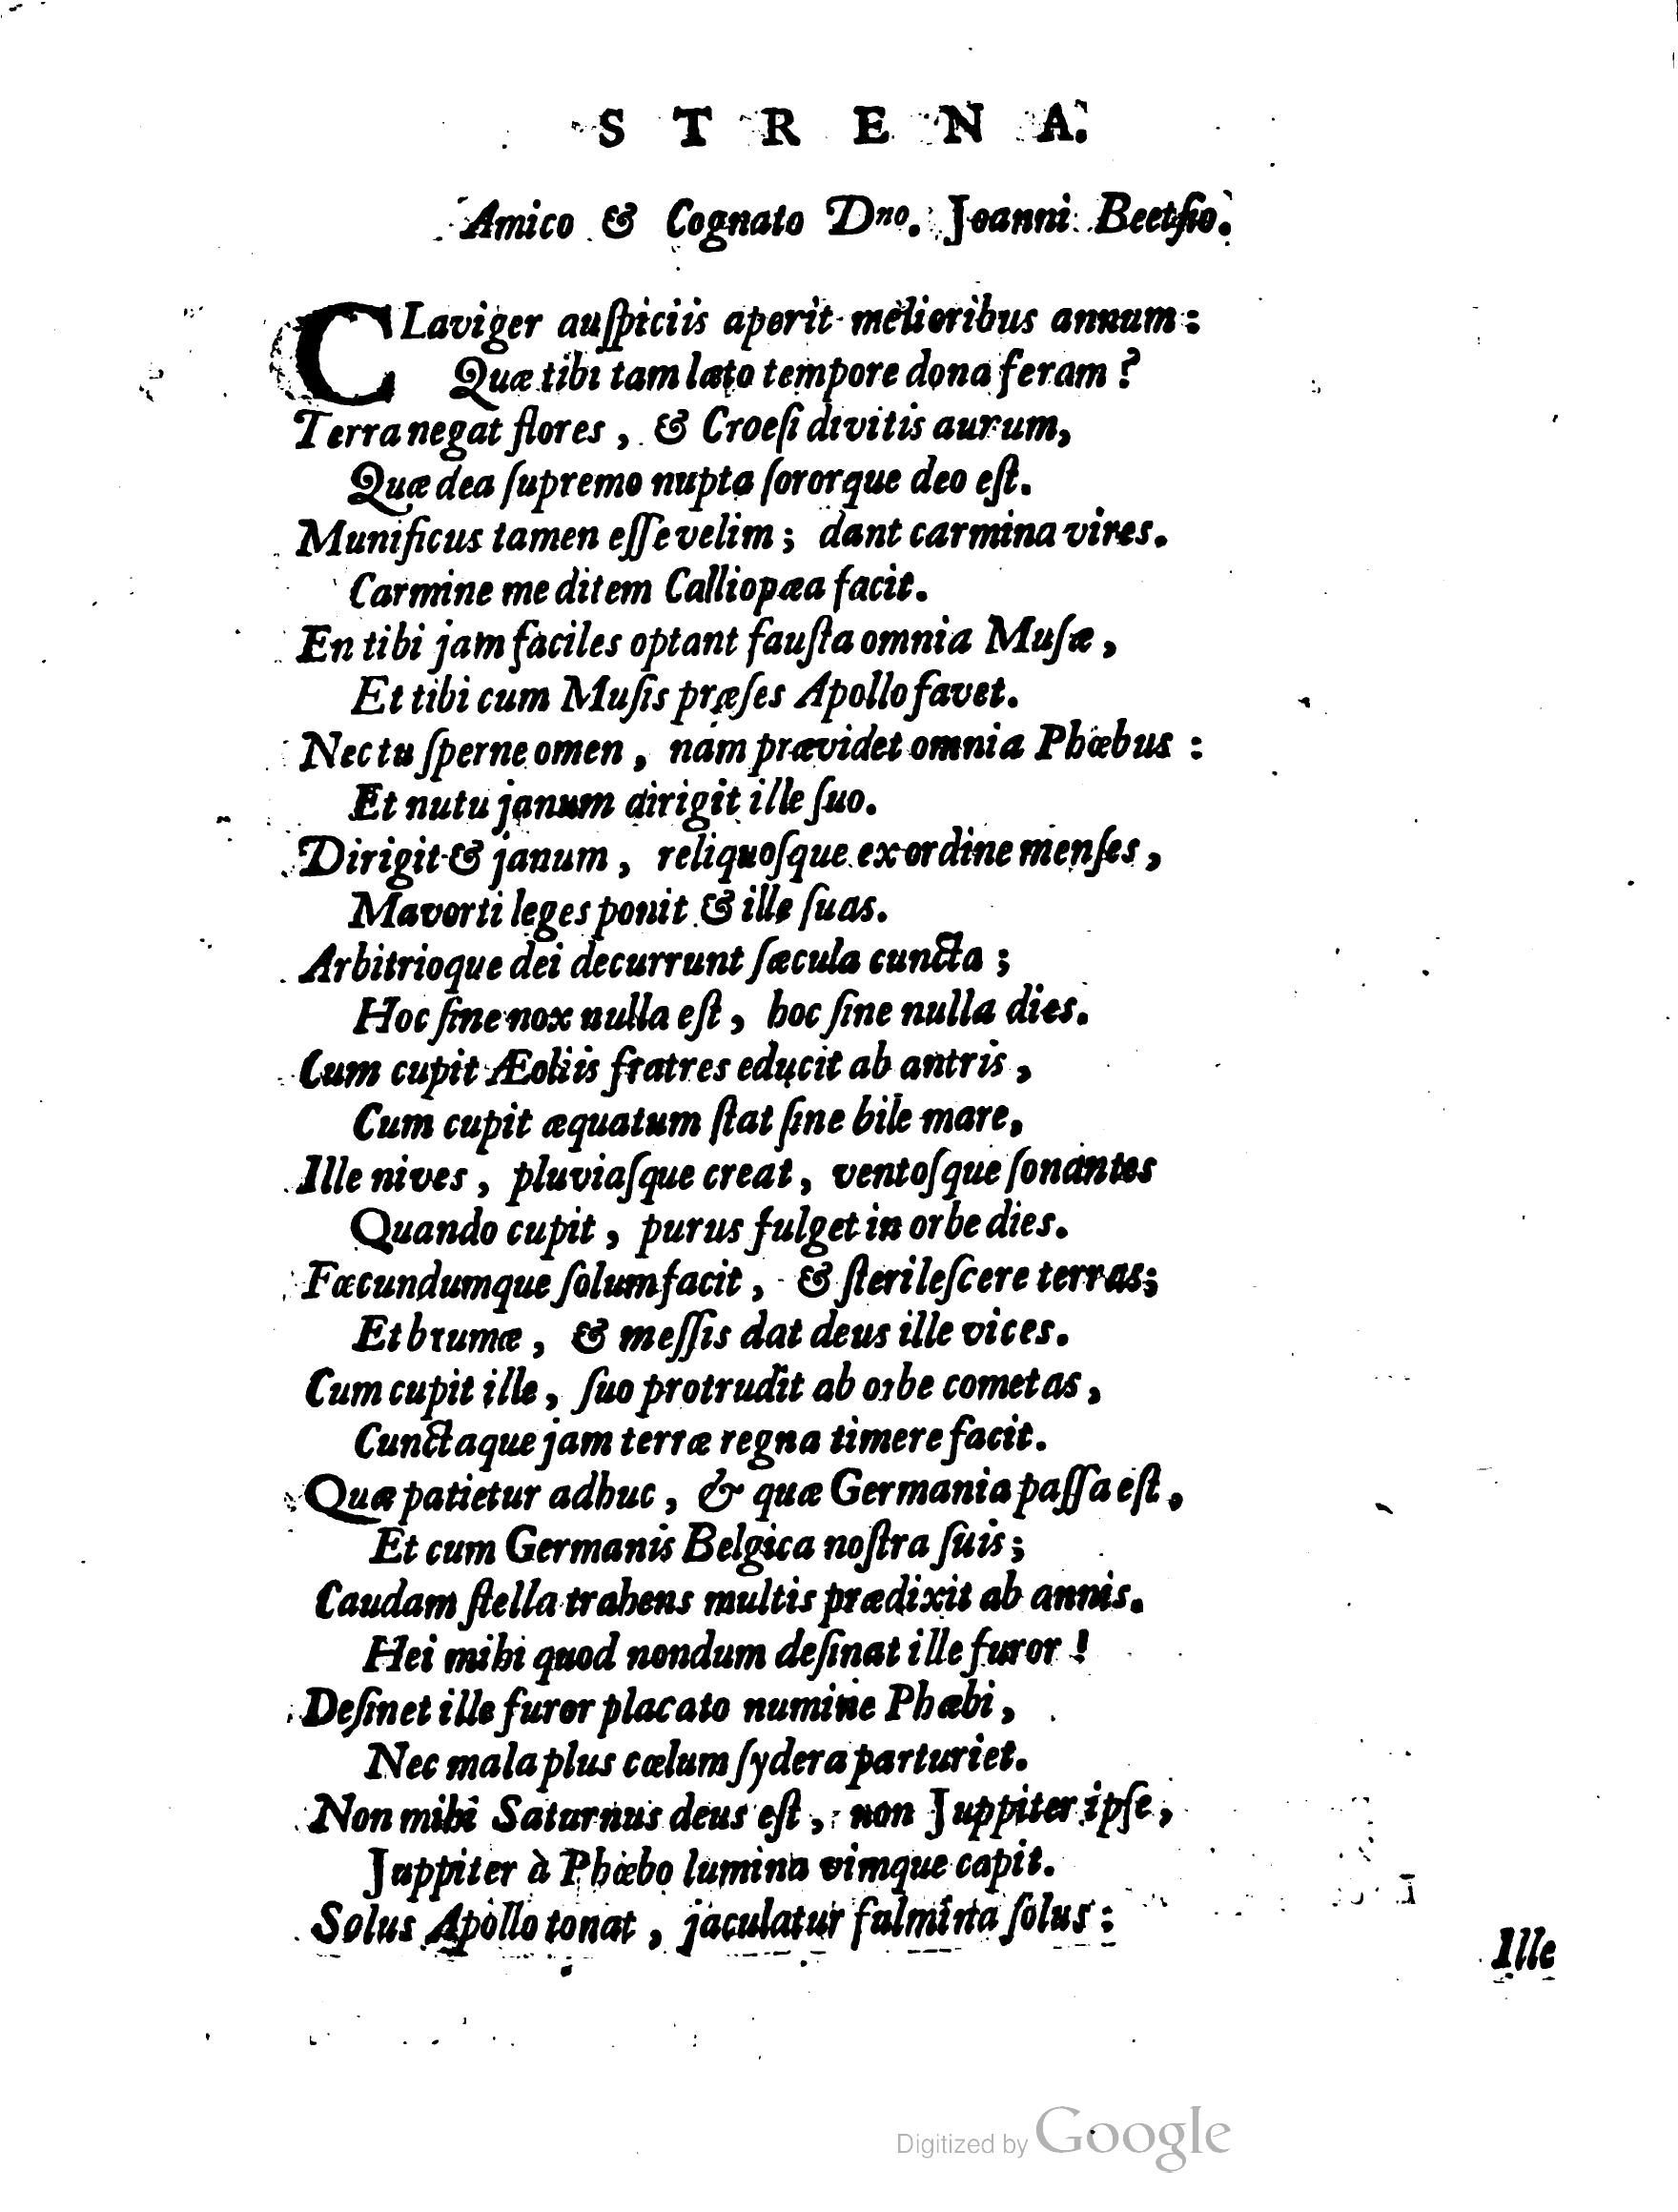 STRENA.
Amico & Cognato Dno. Joanni Beetsio.
CLaviger auſpiciis aperit melioribus annum:
Quæ tibi tam læto tempore dona feram?
Terra negat flores, & Croeſi divitis aurum,
Quæ dea ſupremo nupta ſororque deo eſt.
Munificus tamen eſſe velim; dant carmina vires.
Carmine me ditem Calliopæa facit.
En tibi jam faciles optant fauſta omnia Muſæ,
Et tibi cum Muſis præſes Apollo favet.
Nec tu ſperne omen, nam prævidet omnia Phœbus:
Et nutu janum dirigit ille ſuo.
Dirigit & janum, reliquoſque ex ordine menſes,
Mavorti leges ponit & ille ſuas.
Arbitrioque dei decurrunt ſæcula cuncta;
Hoc ſine nox nulla eſt, hoc ſine nulla dies.
Cum cupit Æoliis fratres educit ab antris,
Cum cupit æquatum ſtat ſine bile mare,
Ille nives, pluviaſque creat, ventoſque ſonantes
Quando cupit, purus fulget in orbe dies.
Fœcundumque ſolum facit, & ſterileſcere terras;
Et brumæ, & meſſis dat deus ille vices.
Cum cupit ille, ſuo protrudit ab orbe cometas,
Cunctaque jam terræ regna timere facit.
Quæ patietur adhuc, & quæ Germania paſſa eſt,
Et cum Germanis Belgica noſtra ſuis;
Caudam ſtella trahens multis prædixit ab annis.
Hei mihi quod nondum deſinat ille furor!
Deſinet ille furor placato numine Phœbi,
Nec mala plus cœlum ſydera parturiet.
Non mihi Saturnus deus eſt, non Juppiter ipſe,
Juppiter à Phœbo lumina vimque capit.
Solus Apollo tonat, jaculatur fulmina ſolus:
Ille
Digitized by Google